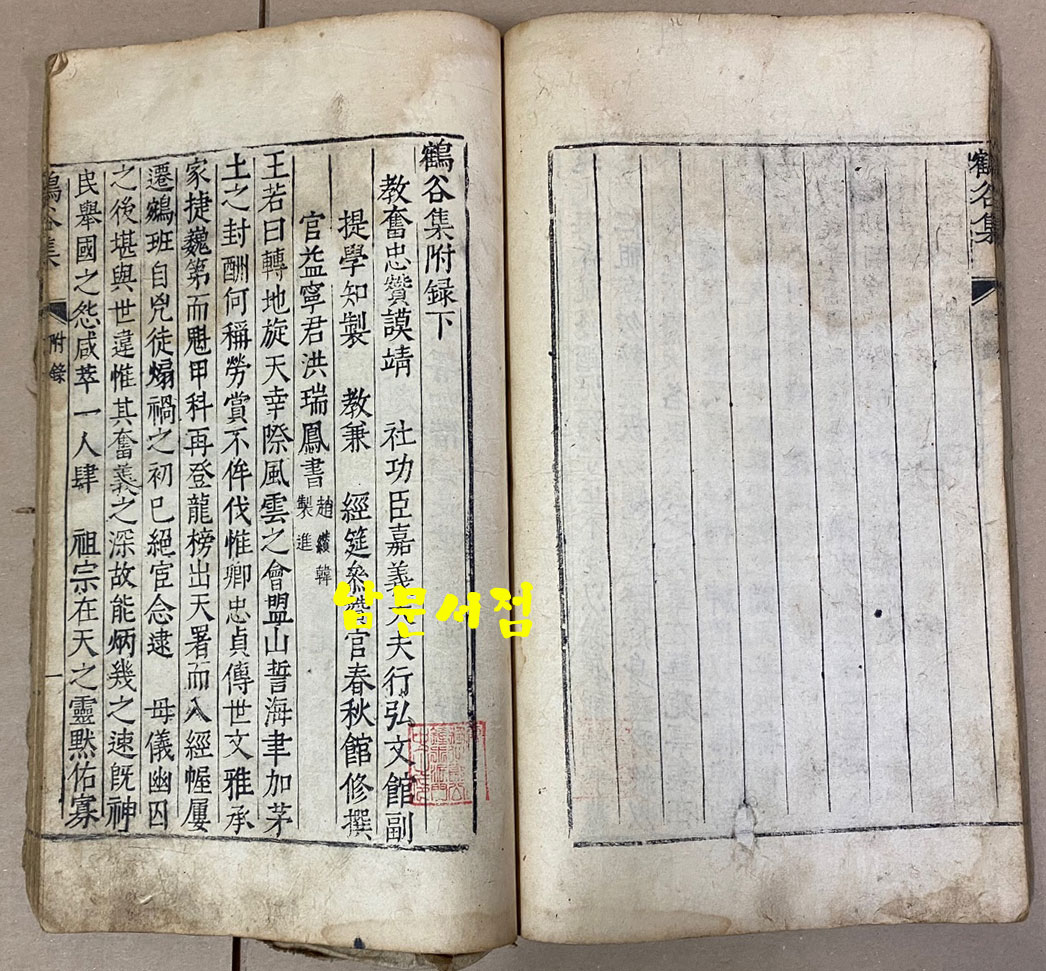 鶴谷集
鶴谷集附録下
教奮忠贊謨靖 社功臣嘉義大夫行弘文館副
提學知製 教兼 經筵叅贊官春秋館修撰
官益寧君洪瑞鳳書
趙纘韓
製進
王若曰轉地旋天幸際風雲之會盟山誓海聿加茅
土之封酬何稱勞賞不侔伐惟卿忠貞傳世文雅承
家捷魏第而魁甲科再登龍榜出天署而入經幄屢
遷鵷班自兇徒煽禍之初已絕宦念逮 母儀幽囚
之後堪與世違惟其奮義之深故能炳幾之速旣神
民舉國之怨咸萃一人肆 祖宗在天之靈黙佑寡
鶴谷集 附錄 一
남문서점